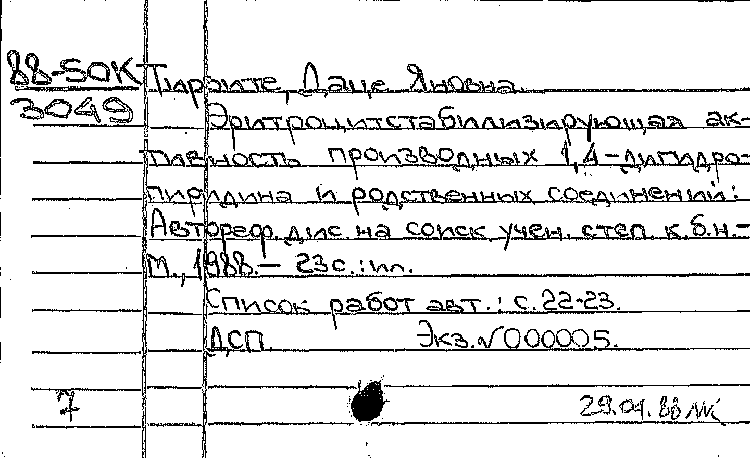 88-50К Тирзите, Даце Яновна.
3049
Эритроцитстабилизирующая ак-
тивность производных 1,4-дигидро-
пиридина и родственных соединений:
Автореф. дис. на соиск. учен. степ. к.б.н.-
М., 1988.- 23с.:ил.
Список работ авт.: с.22-23.
ДСП. Экз.№000005.
7 29.04.88